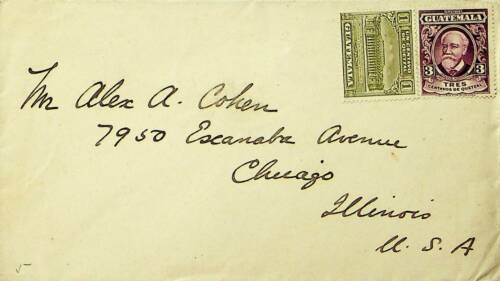 GUATEMALA
1 1
GUATEMALA
3 3
TRES
CENTAVOS DE QUETZAL
Mr Alex A. Cohen
7950 Escanaba Avenue
Chicago
Illinois
U. S. A